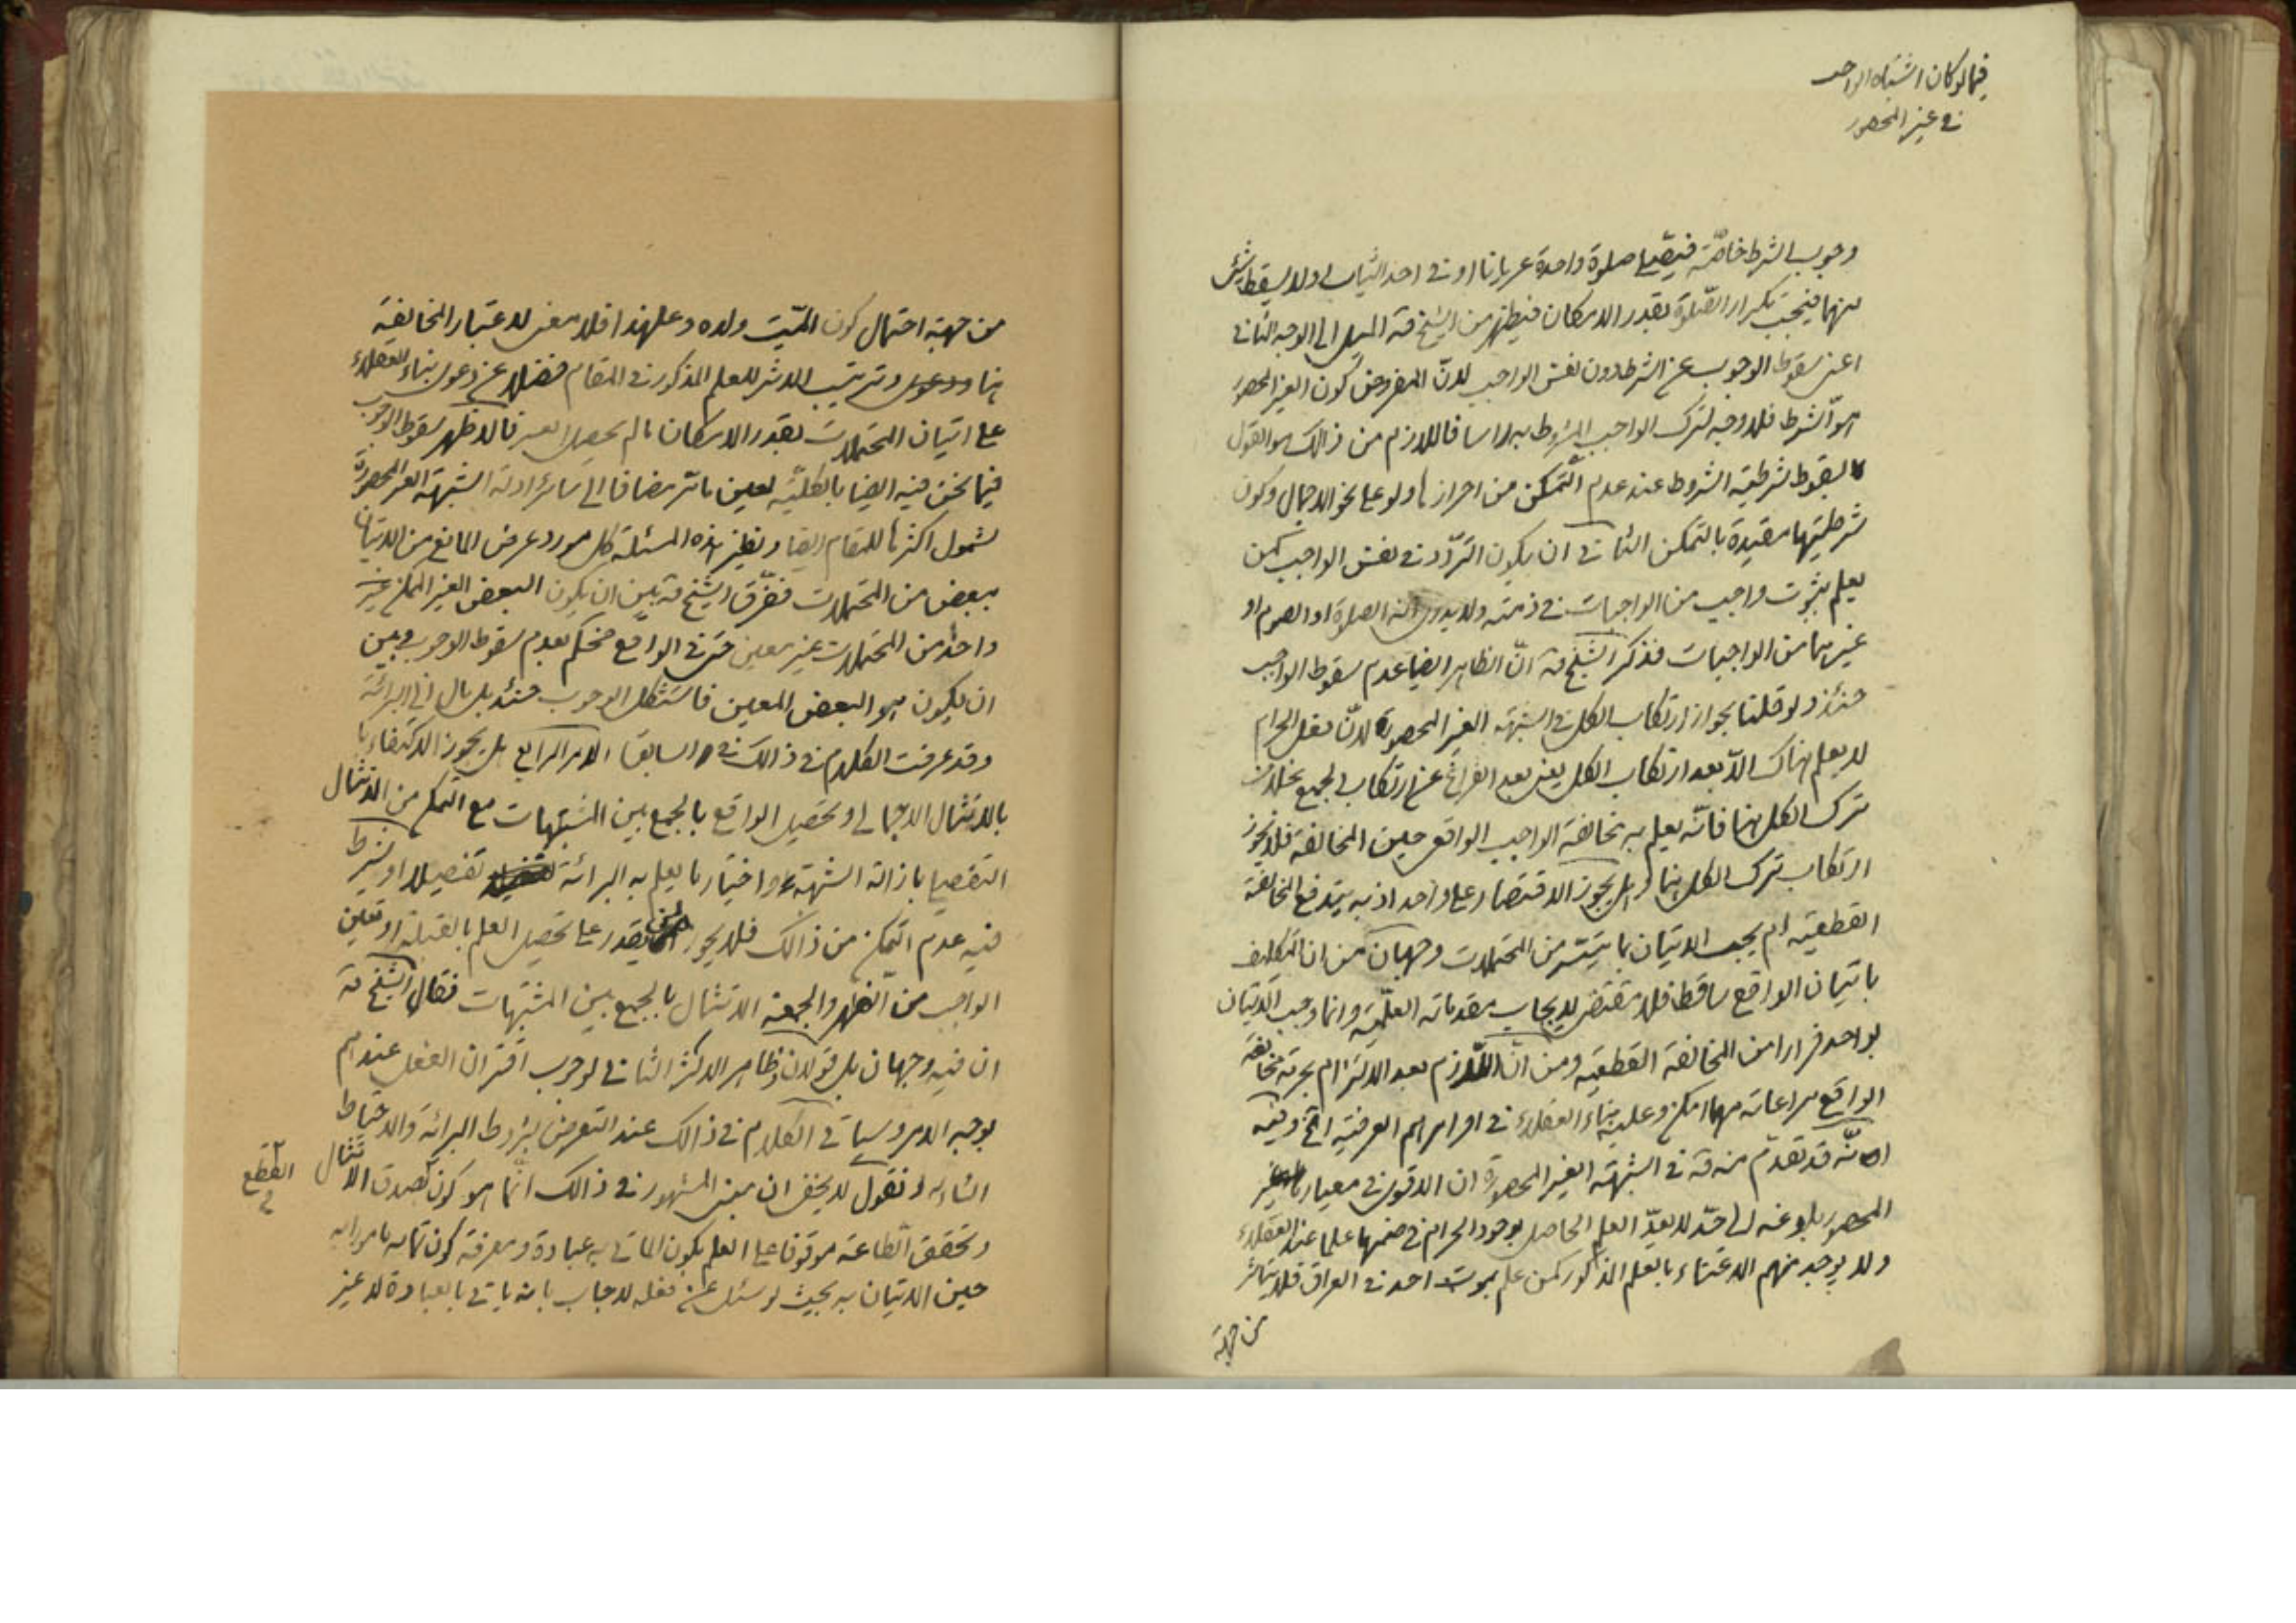 فيما لو كان اشتباه الواجب
في غير المحصور
وجوب الشرط خاصّة فيصلّي صلوة واحدة عريانا او في احد الثياب او لا يسقط شيئ
منهما فيجب تكرار الصّلوة بقدر الامكان فيظهر من الشيخ قه الميل الى الوجه الثاني
اعني سقوط الوجوب عن الشرط دون نفس الواجب لانّ المفروض كون الغير المحصور
هو الشرط فلا وجه لترك الواجب المشروط به راسا فاللازم من ذالك هو القول
بسقوط شرطية الشروط عند عدم التّمكن من احرازها ولو على نحو الاجمال وكون
شرطيتها مقيدة بالتمكن الثاني ان يكون التردّد في نفس الواجب كمن
يعلم بثبوت واجب من الواجبات في ذمته ولا يدري انه الصلوة او الصوم او
غيرهما من الواجبات فذكر الشيخ قه انّ الظاهر ايضا عدم سقوط الواجب
حنئذ ولو قلنا بجواز ارتكاب الكل في الشبهة الغير المحصورة لانّ فعل الحرام
لا يعلم هناك الّا بعد ارتكاب الكل يعني بعد الفراغ عن ارتكاب الجميع بخلاف
ترك الكل هنا فانّه يعلم به مخالفة الواجب الواقع حين المخالفة فلا يجوز
ارتكاب ترك الكل هنا وهل يجوز الاقتصار على واحد اذ به يندفع المخالفة
القطعيه ام يجب الاتيان بما يتيسّر من المحتملات وجهان من ان التكليف
باتيان الواقع ساقط فلا مقتضي لايجاب مقدماته العلميّة وانما وجب الاتيان
بواحد فرارا من المخالفة القطعيه ومن انّ اللّازم بعد الالتزام بحرمة مخالفة
الواقع مراعاته مهما امكن وعليه بناء العقلاء في اوامرهم العرفيه اتخ وفيه
انّه قد تقدّم منه قه في الشبهة الغير المحصورة ان الاقوى في معيار غير
المحصور بلوغه الى حدّ لا يعدّ العلم الحاصل بوجود الحرام في ضمنها علما عند العقلاء
ولا يوجد منهم الاعتناء بالعلم المذكور كمن علم بموت احد في العراق فلا يتأثر
من جهة
من جهة احتمال كون الميّت ولده وعلى هذا فلا معنى لاعتبار المخالفة
هنا وترتيب الاثر للعلم المذكور في المقام فضلا عن دعوى بناء العقلاء
على اتيان المحتملات بقدر الامكان ما لم يحصل العسر فالاظهر سقوط الوجوب
فيما نحن فيه ايضا بالكليّة لعين ما مّر مضافا الى سائر ادلة الشبهة الغير المحصورة
لشمول اكثرها للمقام ايضا ونظير هذه المسئلة كل مورد عرض المانع من الاتيان
ببعض من المحتملات ففرّق الشيخ قه بين ان يكون البعض الغير الممكن غير
واحد من المحتملات غير معين حتى في الواقع فحكم بعدم سقوط الوجوب وبين
ان يكون هو البعض المعين فاستشكل الوجوب حنئذ بل مال الى البرائة
وقد عرفت الكلام في ذالك في سابقا الامر الرابع هل يجوز الاكتفاء
بالامتثال الاجمالي وتحصيل الواقع بالجمع بين المشتبهات مع التمكن من الامتثال
التفصيلي بازالة الشبهة واختيار ما يعلم به البرائة تفصيلا او يشترط
فيه عدم التمكن من ذالك فلا يجوز لمن يقدر على تحصيل العلم بالقبلة او تعيين
الواجب من الظهر والجمعة الامتثال بالجمع بين المشتبهات فقال الشيخ قه
ان فيه وجهان بل قولان وظاهر الاكثر الثاني لوجوب اقتران الفعل عندهم
بوجه الامر وسياتي الكلام في ذالك عند التعرض لشروط البرائة والاحتياط
انشاء الله و نقول لا يخفى ان مبنى المشهور في ذالك انّما هو كون صدق الامتثال
القطع
وتحقق الطاعة موقوفا على العلم بكون الماتي به عبادة ومعرفة كون ماموراً به
حين الاتيان به بحيث لو سئل عن فعله لاجاب بانه ياتي بالعبادة لا غير